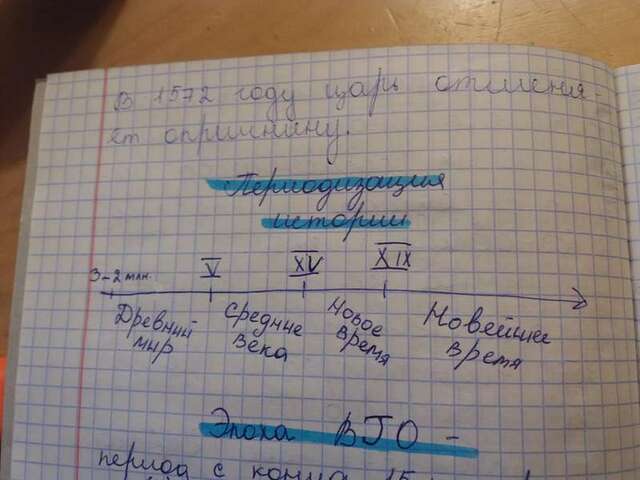 В 1572 году царь отменя-
ет опричнину.
Периодизация
истории
3-2 млн. V XV XIX
Древний Средние Новое Новейшее
мир века время время
Эпоха ВГО -
период с конца 15